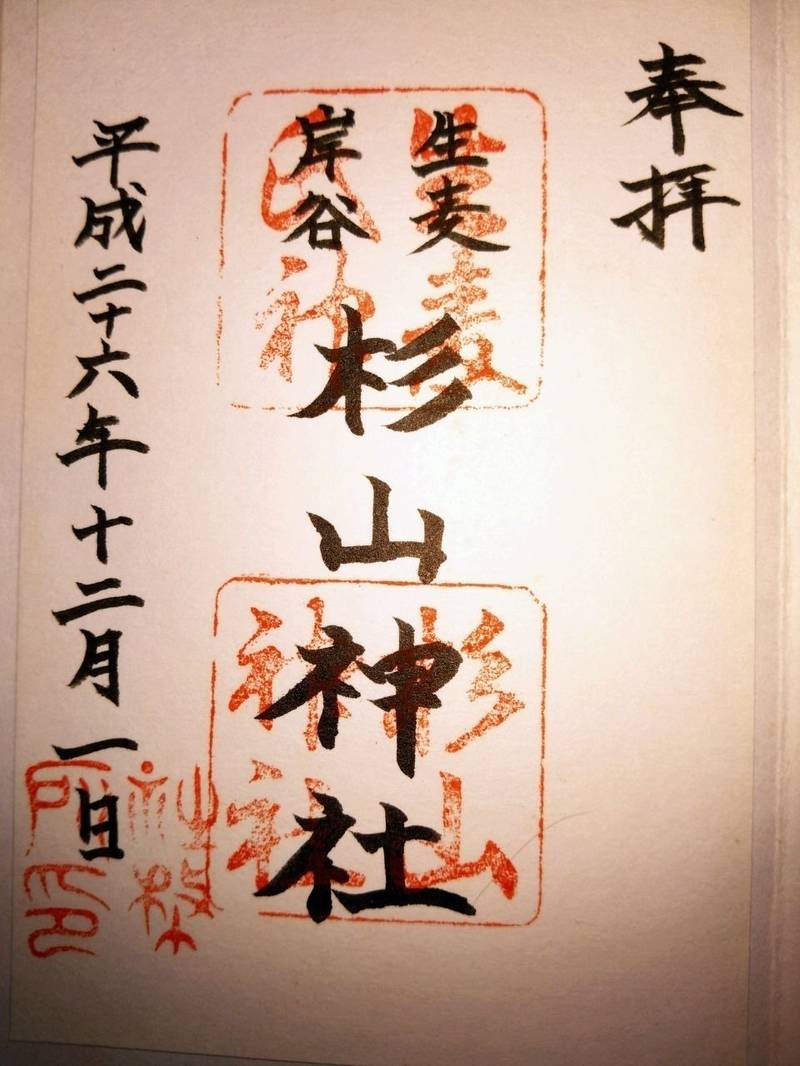 奉拝
生麦
岸谷
杉山神社
平成二十六年十二月一日
生麦
氏神
杉山
神社
社務
所印